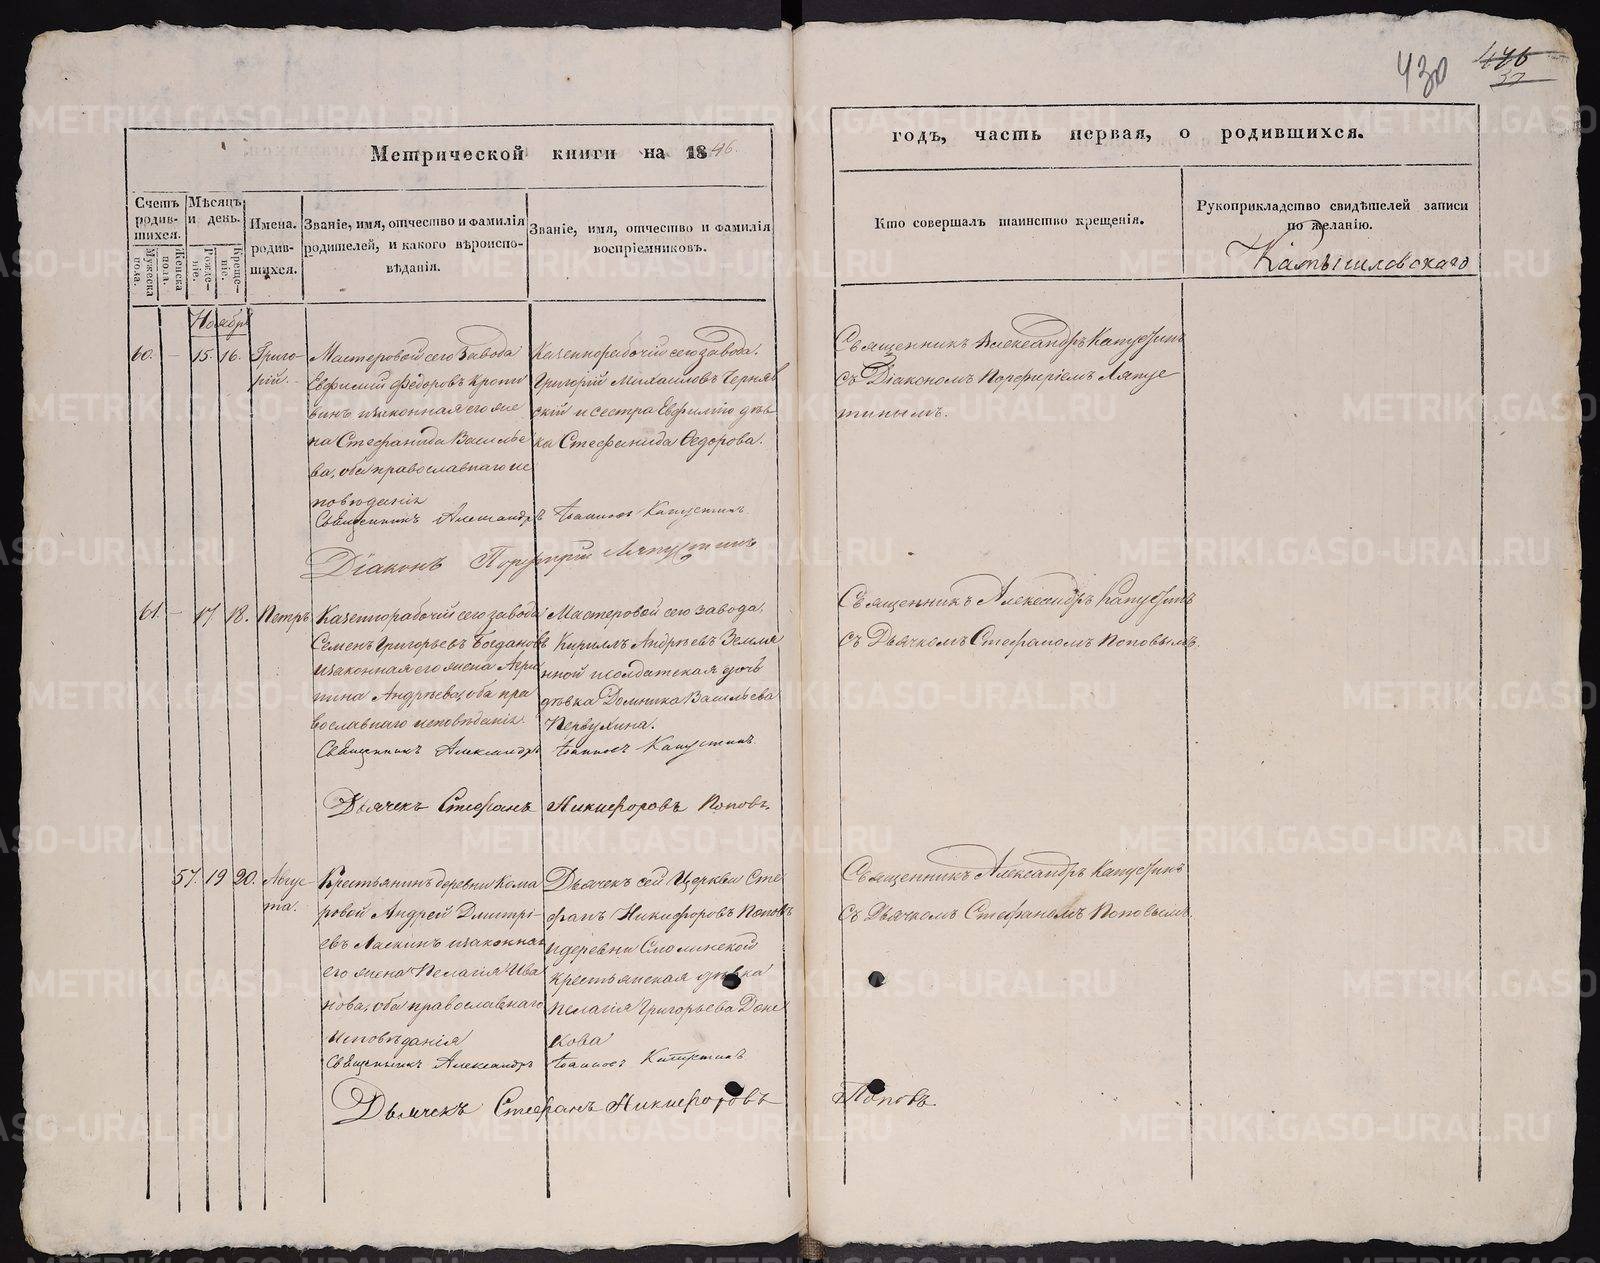 430 446
37
Метрической книги на 1846.
годъ, часть первая, о родившихся.
Счетъ родившихся.
Мужеска пола.
Женска пола.
Мѣсяцъ и день.
Рожденіе.
Крещеніе.
Имена родившихся.
Званіе, имя, отчество и фамилія родителей, и какого вѣроисповѣданія.
Званіе, имя, отчество и фамилія воспріемниковъ.
Кто совершалъ таинство крещенія.
Рукоприкладство свидѣтелей записи по желанію.
Камышловскаго
Ноября
60. — 15. 16. Григорій.
Мастеровой сего завода
Евфимій Ѳедоровъ Кропи
винъ и законная его же
на Стефанида Василье
ва, оба православнаго ис
повѣданія
Казеннорабочій сего завода.
Григорій Михаиловъ Черняв
скій и сестра Евфимію дѣв
ка Стефанида Ѳедорова.
Священникъ Александръ Капустинъ
съ Діакономъ Порфиріемъ Ляпус
тинымъ.
Священникъ Александръ Іоанновъ Капустинъ
Діаконъ Порфирій Ляпустинъ
61. — 17. 18. Петръ
Казеннорабочій сего завода
Семенъ Григорьевъ Богдановъ
и законная его жена Агри
пина Андрѣева, оба пра
вославнаго исповѣданія.
Мастеровой сего завода,
Кириллъ Андрѣевъ Земля
нной и солдатская дочь
дѣвка Домника Васильева
Первухина.
Священникъ Александръ Капустинъ
съ Дьячкомъ Стефаномъ Поповымъ.
Священникъ Александръ Іоанновъ Капустинъ
Дьячекъ Стефанъ Никифоровъ Поповъ.
57. 19 20. Августа.
Крестьянинъ деревни Кома
ровой Андрей Дмитрі-
евъ Ласкинъ и законная
его жена Пелагія Ива
нова, оба православнаго
исповѣданія
Дьячекъ сей Церкви Сте
фанъ Никифоровъ Поповъ
и деревни Смолинской
крестьянская дѣвка
Пелагія Григорьева
кова
Священникъ Александръ Капустинъ
съ Дьячкомъ Стефаномъ Поповымъ.
Священникъ Александръ Іоанновъ Капустинъ
Дьячекъ Стефанъ Никифоровъ Поповъ
METRIKI.GASO-URAL.RU